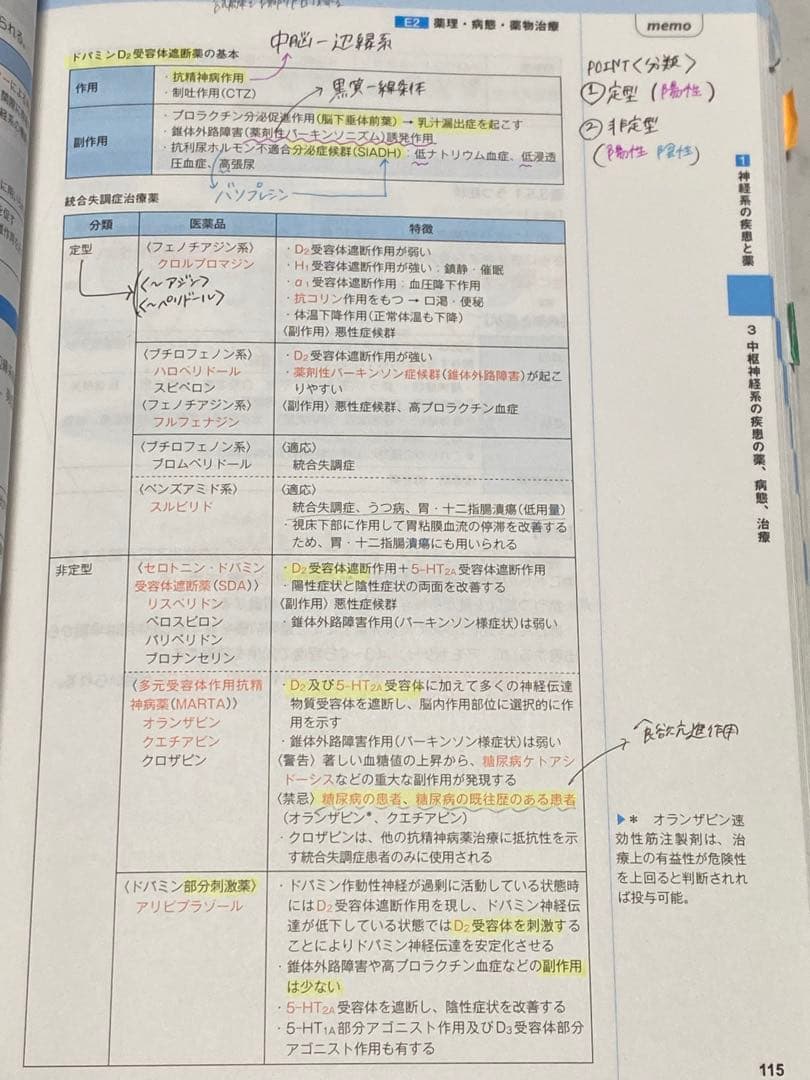 E2 薬理・病態・薬物治療
memo
ドパミンD2受容体遮断薬の基本
中脳ー辺縁系
作用
・抗精神病作用
・制吐作用(CTZ)
黒質ー線条体
副作用
・プロラクチン分泌促進作用(脳下垂体前葉) → 乳汁漏出症を起こす
・錐体外路障害(薬剤性パーキンソニズム)誘発作用
・抗利尿ホルモン不適合分泌症候群(SIADH)：低ナトリウム血症、低浸透
圧血症、高張尿
バソプレシン
POINT〈分類〉
① 定型 (陽性)
② 非定型
(陽性 陰性)
統合失調症治療薬
分類 医薬品 特徴
定型
〈フェノチアジン系〉
クロルプロマジン
〈〜アジン〉
〈〜ペリドール〉
・D2受容体遮断作用が弱い
・H1受容体遮断作用が強い：鎮静・催眠
・α1受容体遮断作用：血圧降下作用
・抗コリン作用をもつ → 口渇・便秘
・体温下降作用(正常体温も下降)
〈副作用〉悪性症候群
〈ブチロフェノン系〉
ハロペリドール
スピペロン
〈フェノチアジン系〉
フルフェナジン
・D2受容体遮断作用が強い
・薬剤性パーキンソン症候群(錐体外路障害)が起こ
りやすい
〈副作用〉悪性症候群、高プロラクチン血症
〈ブチロフェノン系〉
ブロムペリドール
〈適応〉
統合失調症
〈ベンズアミド系〉
スルピリド
〈適応〉
統合失調症、うつ病、胃・十二指腸潰瘍(低用量)
・視床下部に作用して胃粘膜血流の停滞を改善する
ため、胃・十二指腸潰瘍にも用いられる
非定型
〈セロトニン・ドパミン
受容体遮断薬(SDA)〉
リスペリドン
ペロスピロン
パリペリドン
ブロナンセリン
・D2受容体遮断作用＋5-HT2A受容体遮断作用
・陽性症状と陰性症状の両面を改善する
〈副作用〉悪性症候群
・錐体外路障害作用(パーキンソン様症状)は弱い
〈多元受容体作用抗精
神病薬(MARTA)〉
オランザピン
クエチアピン
クロザピン
・D2及び5-HT2A受容体に加えて多くの神経伝達
物質受容体を遮断し、脳内作用部位に選択的に作
用を示す
・錐体外路障害作用(パーキンソン様症状)は弱い
〈警告〉著しい血糖値の上昇から、糖尿病ケトアシ
ドーシスなどの重大な副作用が発現する
〈禁忌〉糖尿病の患者、糖尿病の既往歴のある患者
(オランザピン*、クエチアピン)
・クロザピンは、他の抗精神病薬治療に抵抗性を示
す統合失調症患者のみに使用される
食欲亢進作用
▶＊ オランザピン速
効性筋注製剤は、治
療上の有益性が危険性
を上回ると判断されれ
ば投与可能。
〈ドパミン部分刺激薬〉
アリピプラゾール
・ドパミン作動性神経が過剰に活動している状態時
にはD2受容体遮断作用を現し、ドパミン神経伝
達が低下している状態ではD2受容体を刺激する
ことによりドパミン神経伝達を安定化させる
・錐体外路障害や高プロラクチン血症などの副作用
は少ない
・5-HT2A受容体を遮断し、陰性症状を改善する
・5-HT1A部分アゴニスト作用及びD3受容体部分
アゴニスト作用も有する
1 神経系の疾患と薬
3 中枢神経系の疾患の薬、病態、治療
115